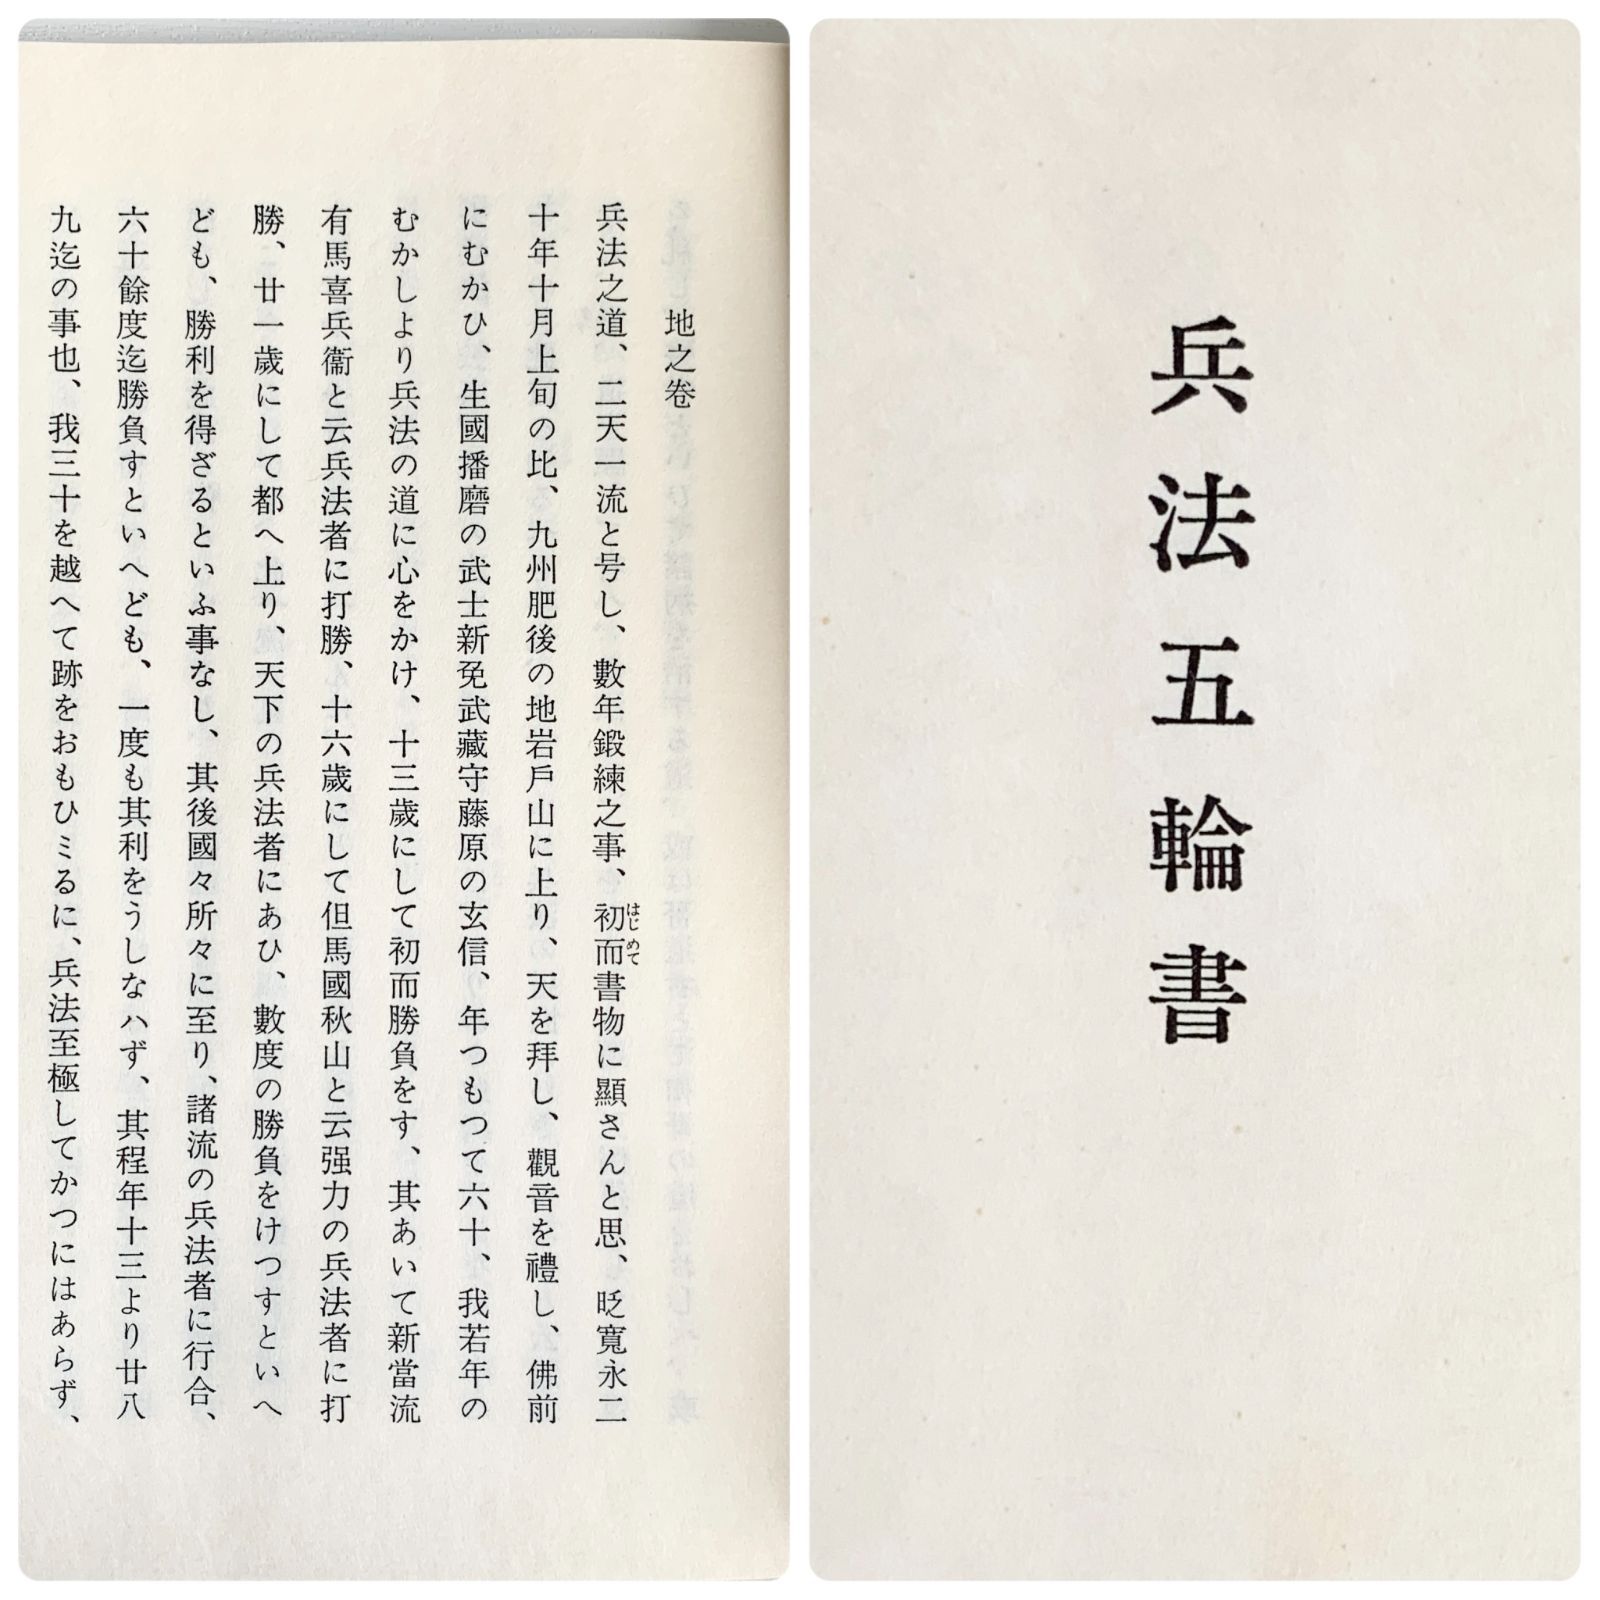 兵法五輪書
地之卷
兵法之道、二天一流と号し、數年鍛練之事、初而書物に顯さんと思、
はじめて
眨寬永二
十年十月上旬の比、九州肥後の地岩戶山に上り、天を拜し、觀音を禮し、佛前
にむかひ、生國播磨の武士新免武藏守藤原の玄信、年つもつて六十、我若年の
むかしより兵法の道に心をかけ、十三歲にして初而勝負をす、其あいて新當流
有馬喜兵衞と云兵法者に打勝、十六歲にして但馬國秋山と云强力の兵法者に打
勝、廿一歲にして都へ上り、天下の兵法者にあひ、數度の勝負をけつすといへ
ども、勝利を得ざるといふ事なし、其後國々所々に至り、諸流の兵法者に行合、
六十餘度迄勝負すといへども、一度も其利をうしなハず、其程年十三より廿八
九迄の事也、我三十を越へて跡をおもひミるに、兵法至極してかつにはあらず、